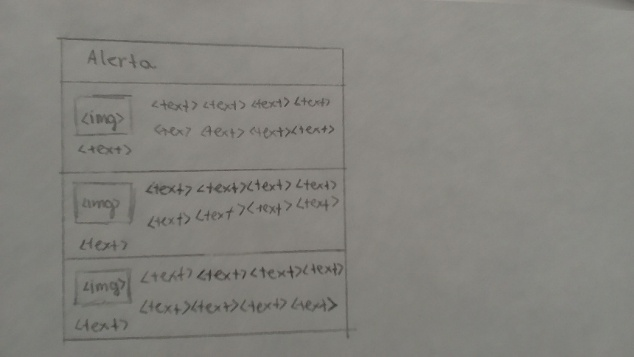 Alerta
<img> <text> <text> <text> <text>
<tex> <text> <text> <text>
<text>
<img> <text> <text> <text> <text>
<text> <text> <text> <text>
<text>
<img> <text> <text> <text> <text>
<text> <text> <text> <text>
<text>